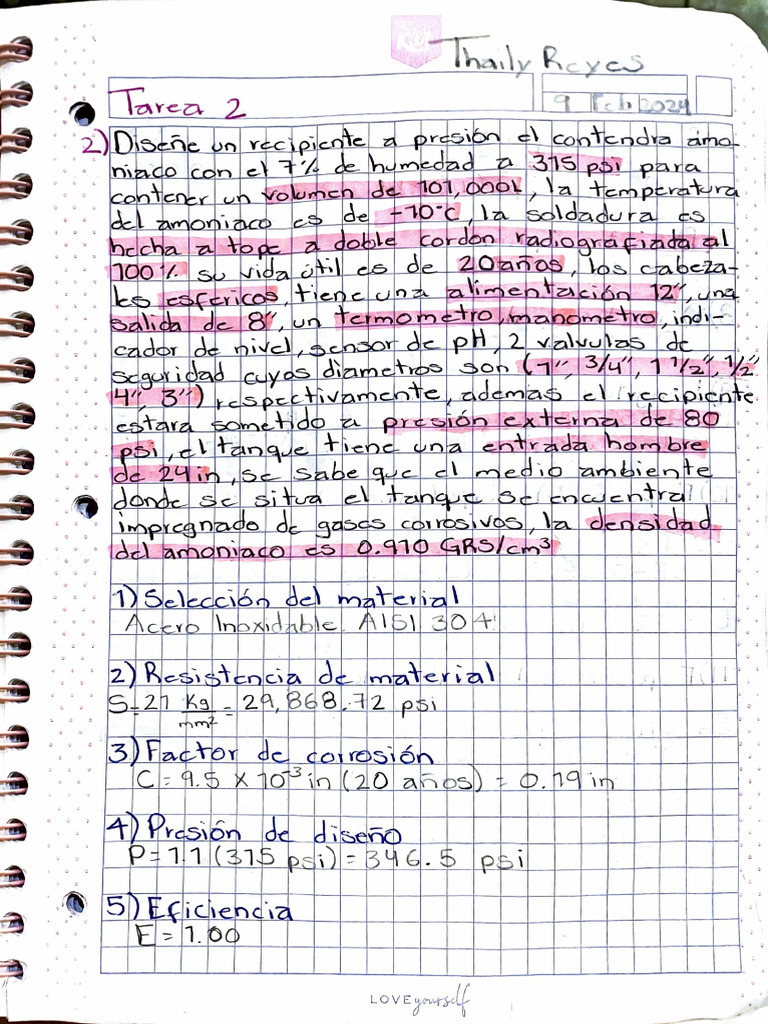 Kut
Thaily Reyes
Tarea 2
9 Feb 2024
2) Diseñe un recipiente a presión el contendra amo-
niaco con el 7% de humedad a 315 psi para
contener un volumen de 101,000L, la temperatura
del amoniaco es de -10°C, la soldadura es
hecha a tope a doble cordón radiografiada al
100% su vida útil es de 20 años, los cabeza-
les esfericos, tiene una alimentación 12", una
salida de 8", un termometro, manometro, indi-
cador de nivel, sensor de pH, 2 valvulas de
seguridad cuyos diametros son (1", 3/4", 1 1/2", 1/2"
4", 3") respectivamente, ademas el recipiente
estara sometido a presión externa de 80
psi, el tanque tiene una entrada hombre
de 24in, se sabe que el medio ambiente
donde se situa el tanque se encuentra
impregnado de gases corrosivos, la densidad
del amoniaco es 0.970 GRS/cm³
1) Selección del material
Acero Inoxidable AISI 304
2) Resistencia de material
S=21 Kg/mm² = 29,868.72 psi
3) Factor de corrosión
C = 9.5 x 10⁻³ in (20 años) = 0.19 in
4) Presión de diseño
P= 1.1 (315 psi) = 346.5 psi
5) Eficiencia
E = 1.00
LOVE yourself